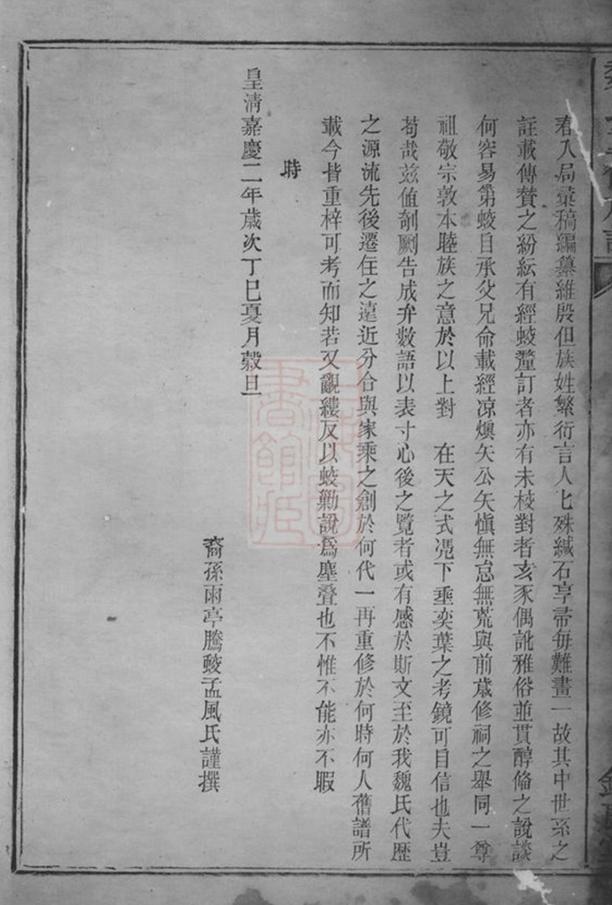 春入局彙稿編纂維殷但族姓繁衍言人七殊緘石享帚每難畫一故其中世系之
註載傳贊之紛紜有經蛟釐訂者亦有未校對者亥豕偶訛雅俗並貫醇俻之說談
何容易第蛟自承父兄命載經凉燠矢公矢愼無怠無荒與前歲修祠之舉同一尊
祖敬宗敦本睦族之意於以上對 在天之式憑下垂奕葉之考鏡可自信也夫豈
苟哉兹值剞劂告成弁數語以表寸心後之覽者或有感於斯文至於我魏氏代歷
之源流先後遷住之遠近分合與家乘之創於何代一再重修於何時何人舊譜所
載今皆重梓可考而知若又覼縷反以蛟勦說爲塵聱也不惟不能亦不暇
時
皇清嘉慶二年歲次丁巳夏月穀旦
裔孫雨亭騰蛟孟風氏謹撰